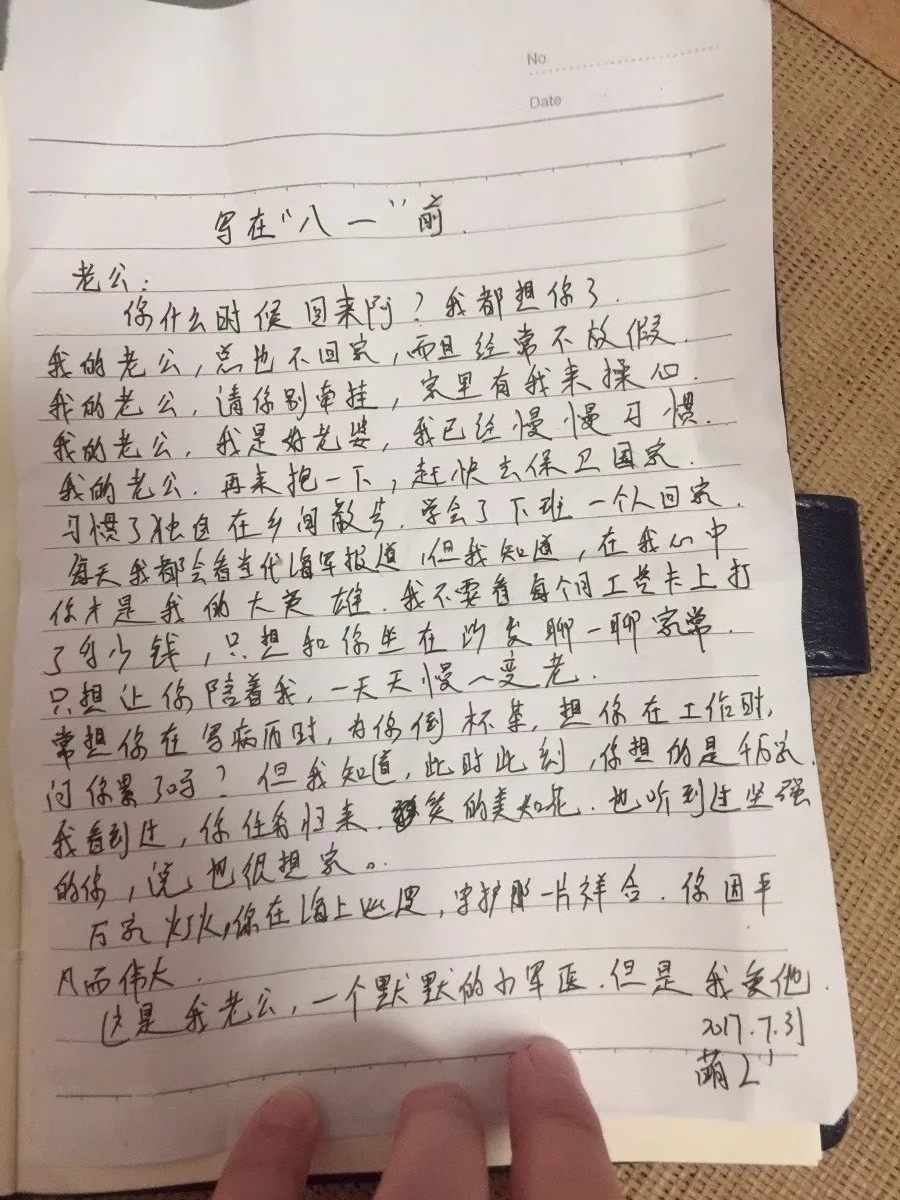 No.
Date
写在“八一”前.
老公：
你什么时候回来阿？我都想你了.
我的老公，总也不回家，而且经常不放假.
我的老公，请你别牵挂，家里有我来操心.
我的老公，我是好老婆，我已经慢慢习惯.
我的老公.再来抱一下，赶快去保卫国家.
习惯了独自在乡间散步.学会了下班一个人回家.
每天我都会看当代海军报道，但我知道，在我心中
你才是我的大英雄.我不要看每个月工资卡上打
了多少钱，只想和你坐在沙发聊一聊家常.
只想让你陪着我，一天天慢慢变老.
常想你在写病历时，为你倒杯茶，想你在工作时，
问你累了吗？但我知道，此时此刻，你想的是千万家.
我看到过，你任务归来，笑的美如花.也听到过坚强
的你，说也很想家。.
万家灯火，你在海上巡逻，守护那一片祥合.你因平
凡而伟大.
这是我老公，一个默默的小军医.但是我爱他.
2017.7.31
萌